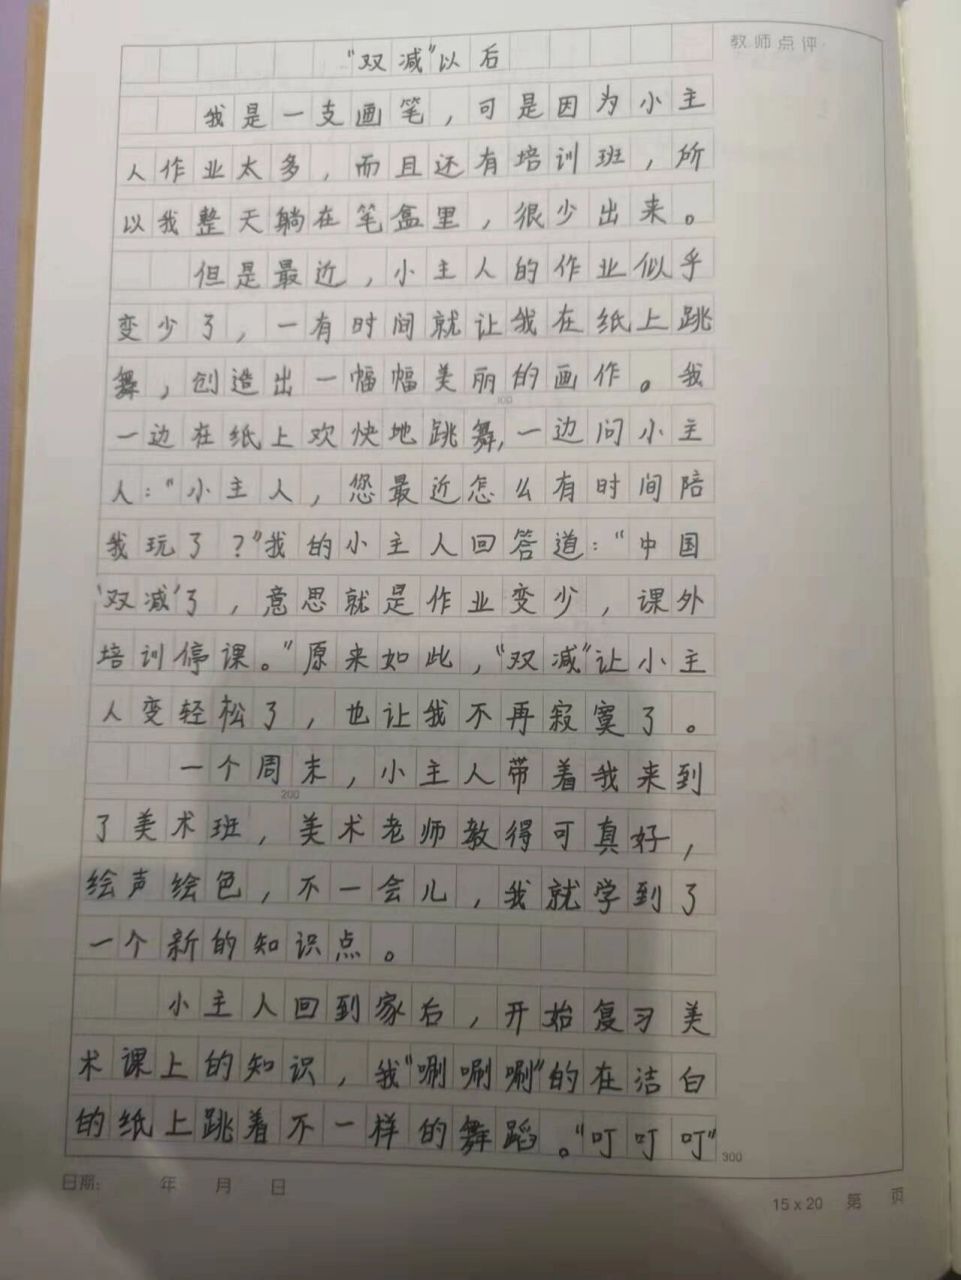 教师点评:
“双减”以后
我是一支画笔，可是因为小主
人作业太多，而且还有培训班，所
以我整天躺在笔盒里，很少出来。
但是最近，小主人的作业似乎
变少了，一有时间就让我在纸上跳
舞，创造出一幅幅美丽的画作。我
100
一边在纸上欢快地跳舞，一边问小主
人：“小主人，您最近怎么有时间陪
我玩了？”我的小主人回答道：“中国
‘双减’了，意思就是作业变少，课外
培训停课。”原来如此，“双减”让小主
人变轻松了，也让我不再寂寞了。
一个周末，小主人带着我来到
200
了美术班，美术老师教得可真好，
绘声绘色，不一会儿，我就学到了
一个新的知识点。
小主人回到家后，开始复习美
术课上的知识，我“唰唰唰”的在洁白
的纸上跳着不一样的舞蹈。“叮叮叮”
300
日期: 年 月 日
15 x 20 第 页